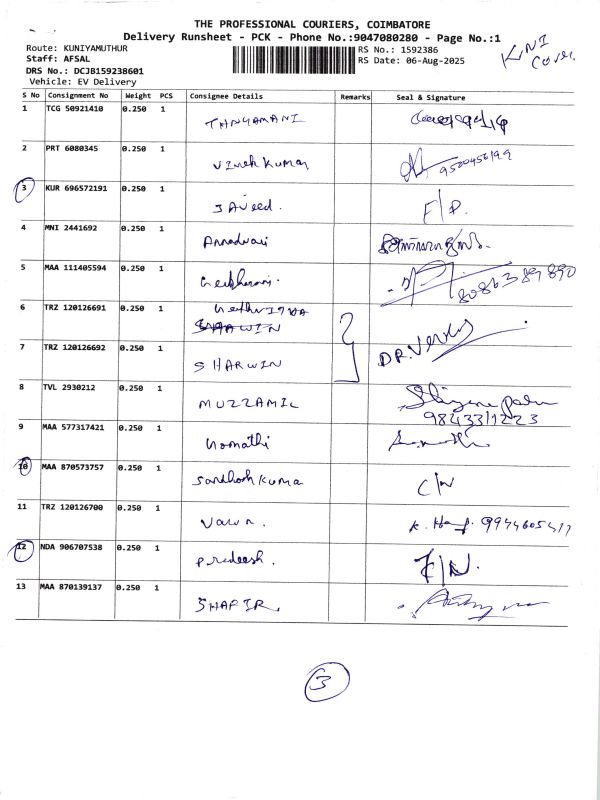 THE PROFESSIONAL COURIERS, COIMBATORE
Delivery Runsheet - PCK - Phone No.:9047080280 - Page No.:1
Route: KUNIYAMUTHUR
RS No.: 1592386
Staff: AFSAL
RS Date: 06-Aug-2025
DRS No.: DCJB159238601
Vehicle: EV Delivery
KNI
Cover
S No Consignment No Weight PCS Consignee Details Remarks Seal & Signature
1 TCG 50921410 0.250 1 THNGAMANI
2 PRT 6080345 0.250 1 Vinoh Kumar
3 KUR 696572191 0.250 1 JAVeed. F/D.
4 MNI 2441692 0.250 1 Annadurai
5 MAA 111405594 0.250 1 8086389890
6 TRZ 120126691 0.250 1
7 TRZ 120126692 0.250 1 SHARWIN DR.
8 TVL 2930212 0.250 1 MUZZAMIL 9843311223
9 MAA 577317421 0.250 1 Gomathi
10 MAA 870573757 0.250 1 Santhosh Kuma C/N
11 TRZ 120126700 0.250 1 Varun. K.
12 NDA 906707538 0.250 1 Pradeesh. F/N.
13 MAA 870139137 0.250 1 SHAFIR.
3